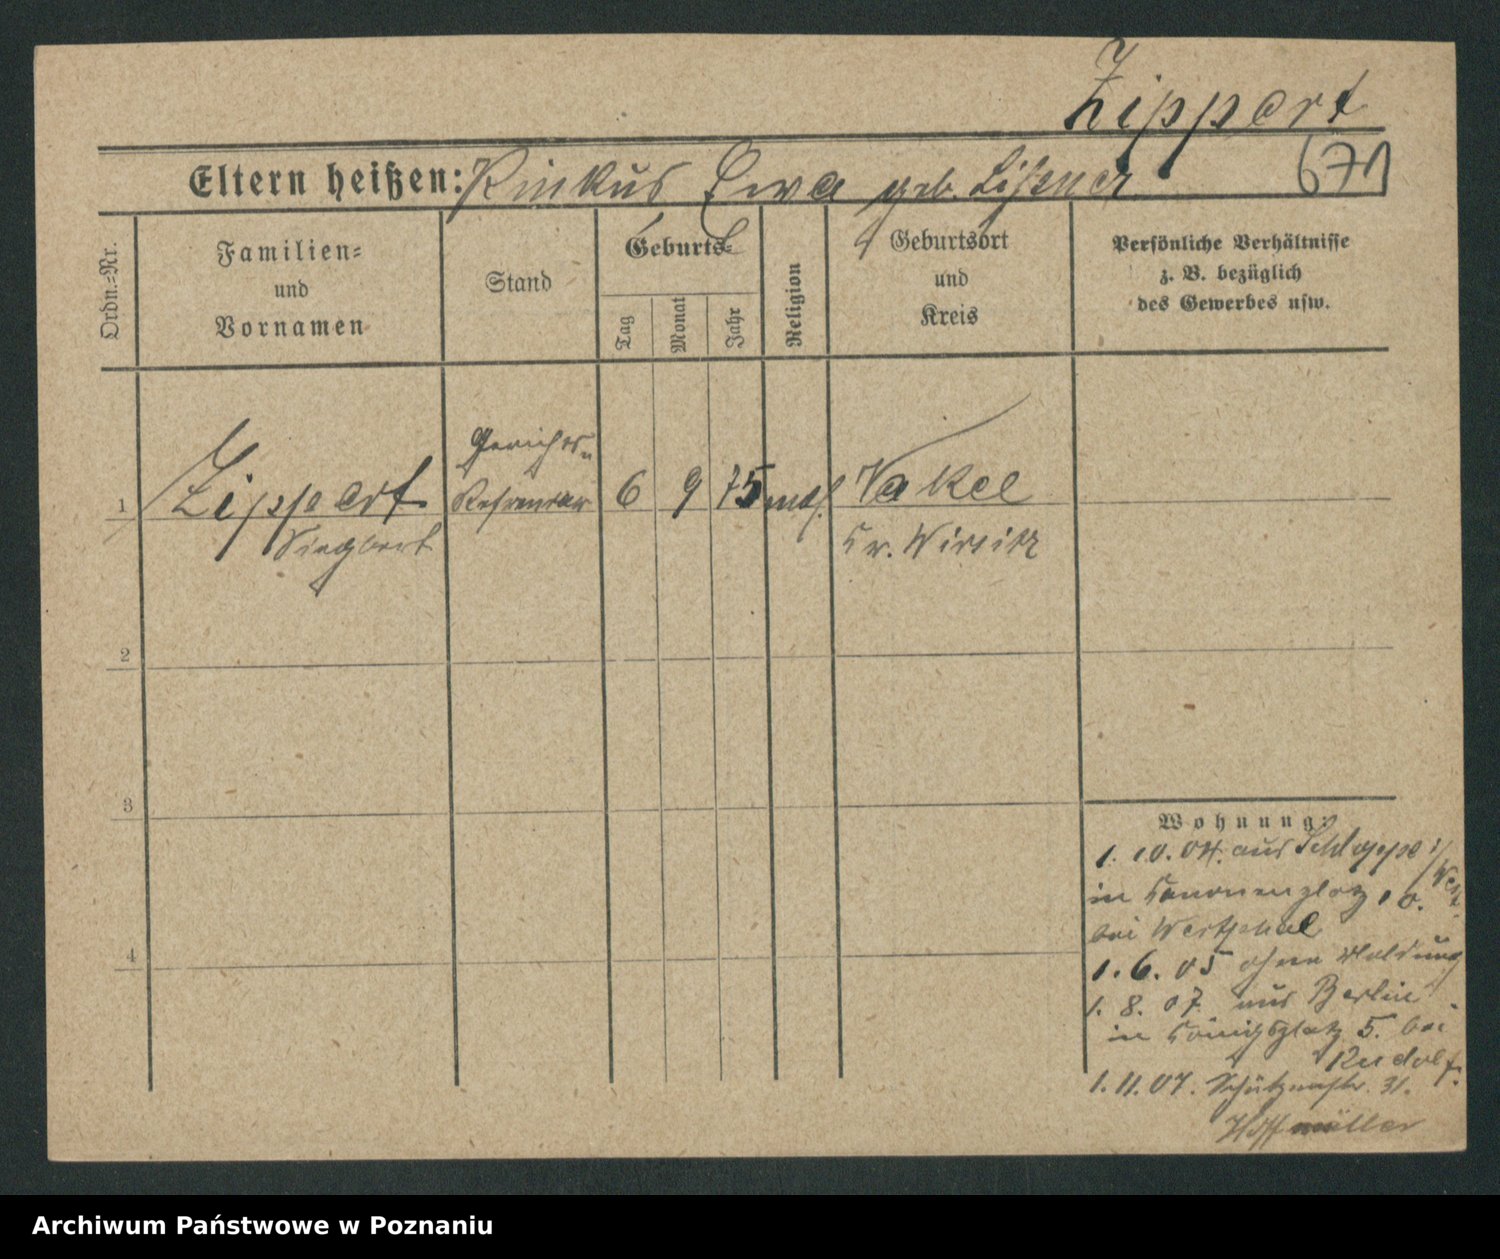 Zippert
Eltern heißen: Pinkus Ewa geb. Lißner
671
Ordn.=Nr.
Familien=
und
Vornamen
Stand
Geburts=
Tag
Monat
Jahr
Religion
Geburtsort
und
Kreis
Persönliche Verhältnisse
z. B. bezüglich
des Gewerbes usw.
1
Zippert
Siegbert
Gerichts=
Referendar
6 9 75 mos.
Vakel
Kr. Wirsitz
2
3
4
Wohnung:
1. 10. 04. aus Schloppe i/
West
in Kanonenplatz 10.
bei Westphal
1. 6. 05 ohne Meldung
1. 8. 07 aus Berlin
in Königsplatz 5. bei
Rudolf.
1. 11. 07. Schützenstr. 31.
Archiwum Państwowe w Poznaniu